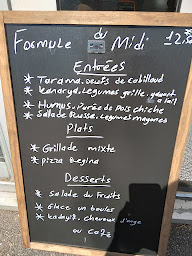 Formule du Midi 12.50
Entrées
* Tarama.oeufs de cabillaud
* Legumes grille.yaourt
a l'ail
* Humus.Purée de Pois chiche
* Salade Russe.Legumes mayones
Plats
* Grillade mixte
* Pizza Regina
Desserts
* Salade du Fruits
* Glace un boules
* Kadayif. cheveux d'ange
ou Café